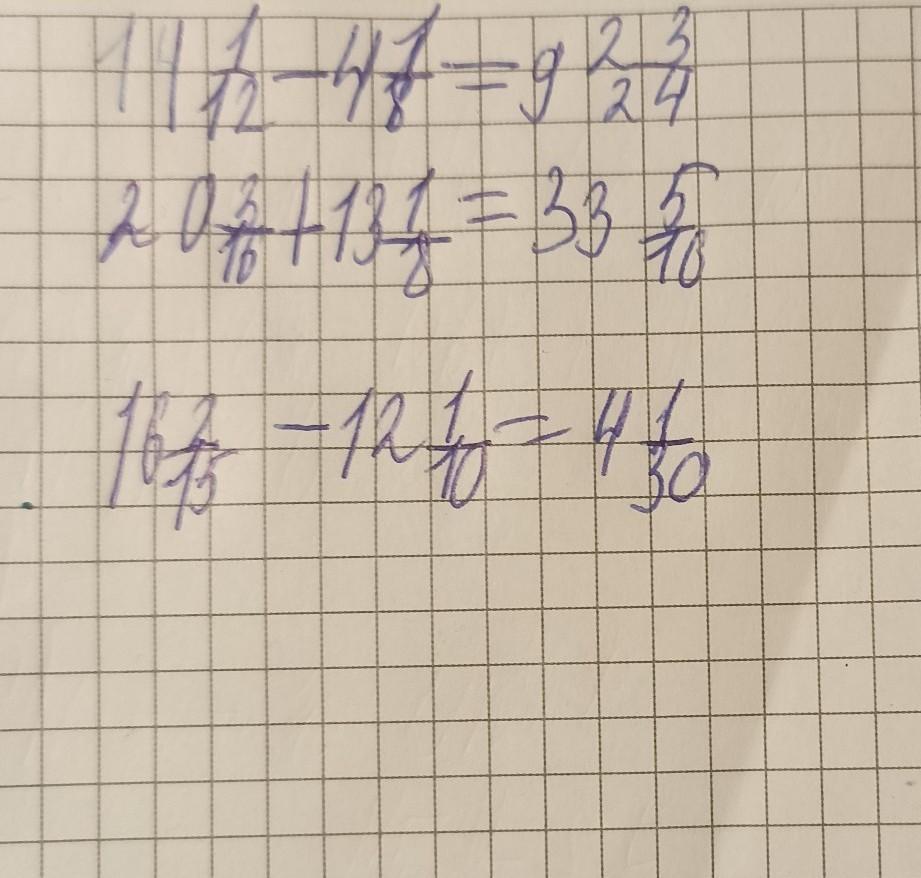 14 1/12 - 4 1/8 = 9 23/24
20 3/16 + 13 1/8 = 33 5/16
16 2/15 - 12 1/10 = 4 1/30